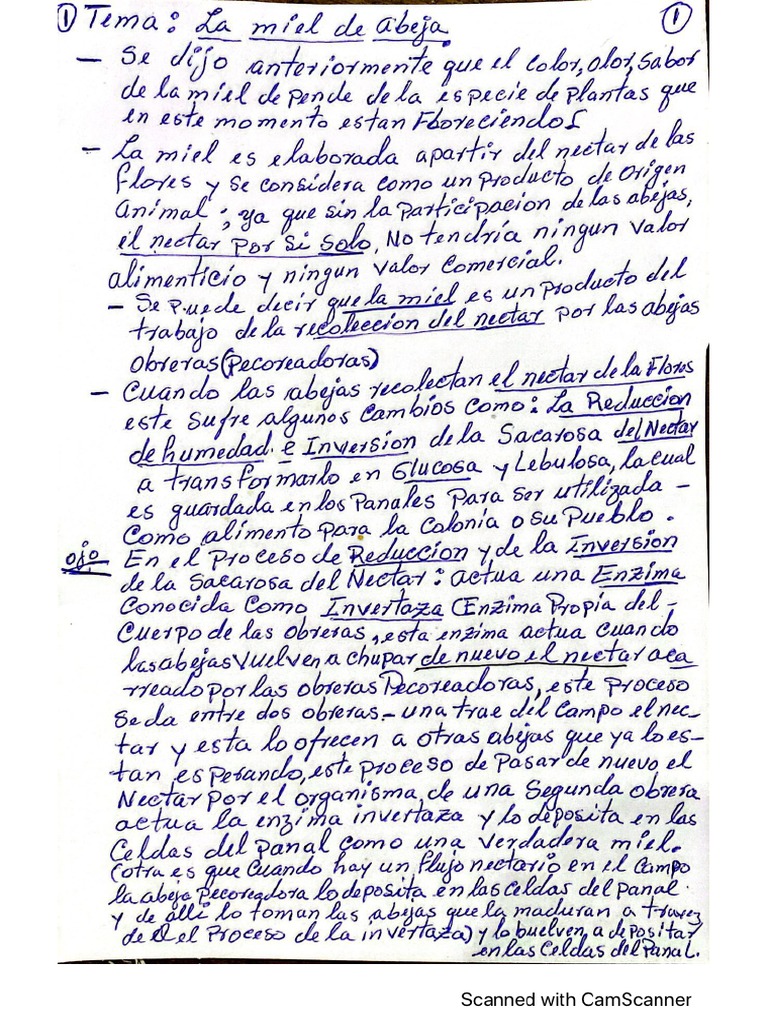 ① Tema: La miel de abeja ①
- Se dijo anteriormente que el color, olor, sabor
de la miel depende de la especie de plantas que
en este momento estan Floreciendo
- La miel es elaborada apartir del nectar de las
flores y se considera como un producto de Origen
animal; ya que sin la participacion de las abejas,
el nectar por si solo, No tendría ningun valor
alimenticio y ningun valor comercial.
- Se puede decir que la miel es un producto del
trabajo de la recoleccion del nectar por las abejas
Obreras (Pecoreadoras)
- Cuando las abejas recolectan el nectar de la Flores
este sufre algunos cambios como: La Reduccion
de humedad e Inversion de la Sacarosa del Nectar
a transformarlo en Glucosa y Lebulosa, la cual
es guardada en los Panales Para ser utilizada -
Como alimento para la Colonia o su Pueblo.
ojo En el Proceso de Reduccion y de la Inversion
de la Sacarosa del Nectar: actua una Enzima
Conocida Como Invertaza (Enzima Propia del -
Cuerpo de las obreras, esta enzima actua cuando
las abejas vuelven a chupar de nuevo el nectar aca
rreado por las obreras Pecoreadoras, este proceso
se da entre dos obreras - una trae del campo el nec-
tar y esta lo ofrecen a otras abejas que ya lo es-
tan esperando, este proceso de Pasar de nuevo el
Nectar por el organisma, de una Segunda obrera
actua la enzima invertaza y lo deposita en las
Celdas del panal como una verdadera miel.
(otra es que cuando hay un flujo nectario en el Campo
la abeja pecoreadora lo deposita en las celdas del panal.
y de alli lo toman las abejas que la maduran a travez
de el Proceso de la invertaza) y lo buelven a depositar
en las Celdas del Panal.
Scanned with CamScanner